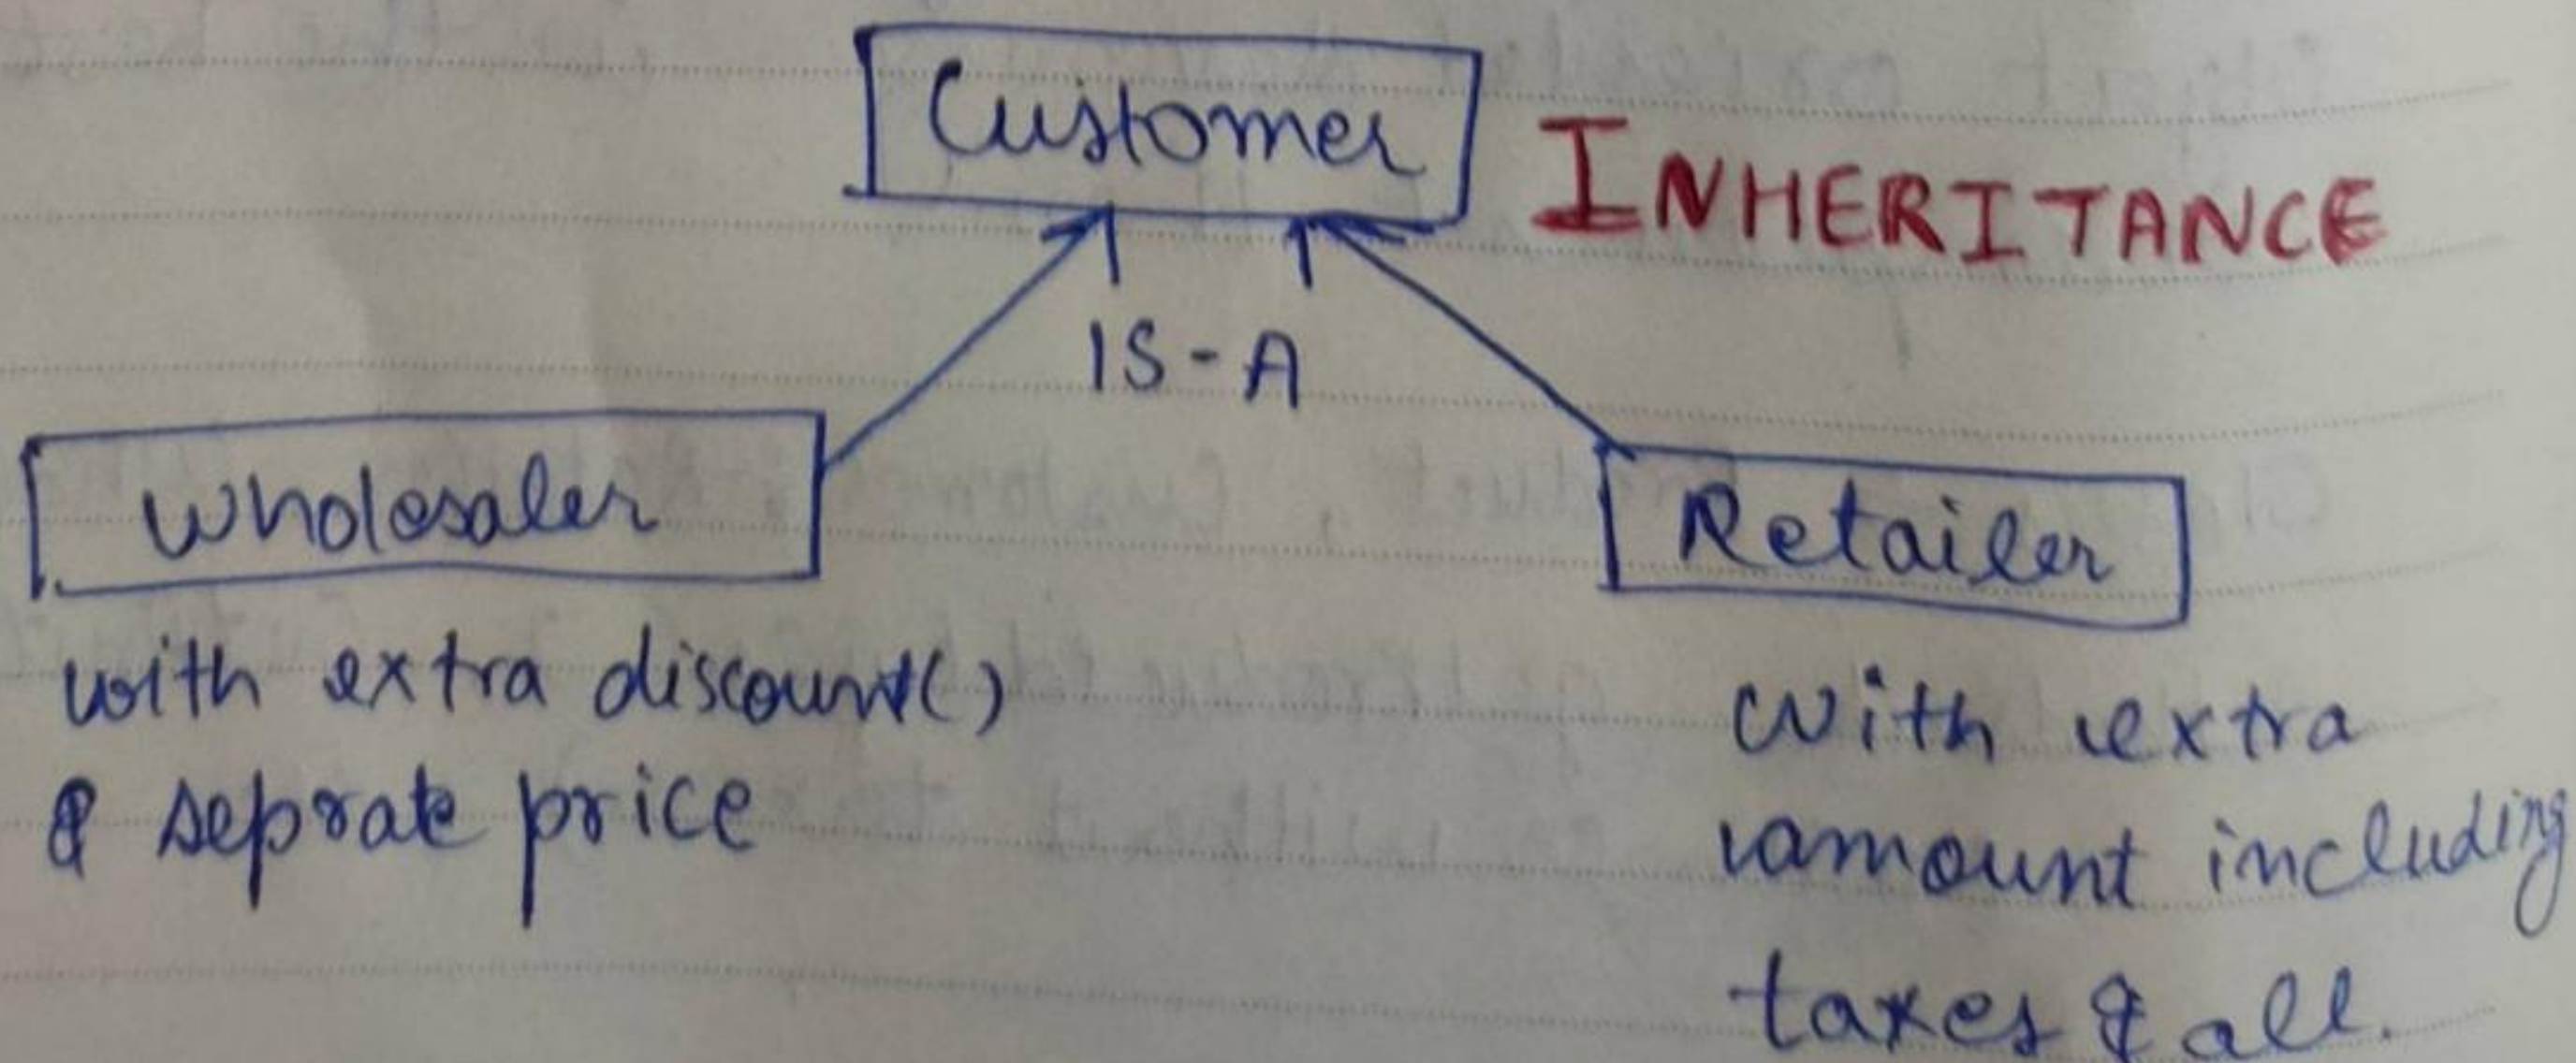 Customer
INHERITANCE
IS-A
Wholesaler
Retailer
with extra discount()
& seprate price
With extra
amount including
taxes & all.